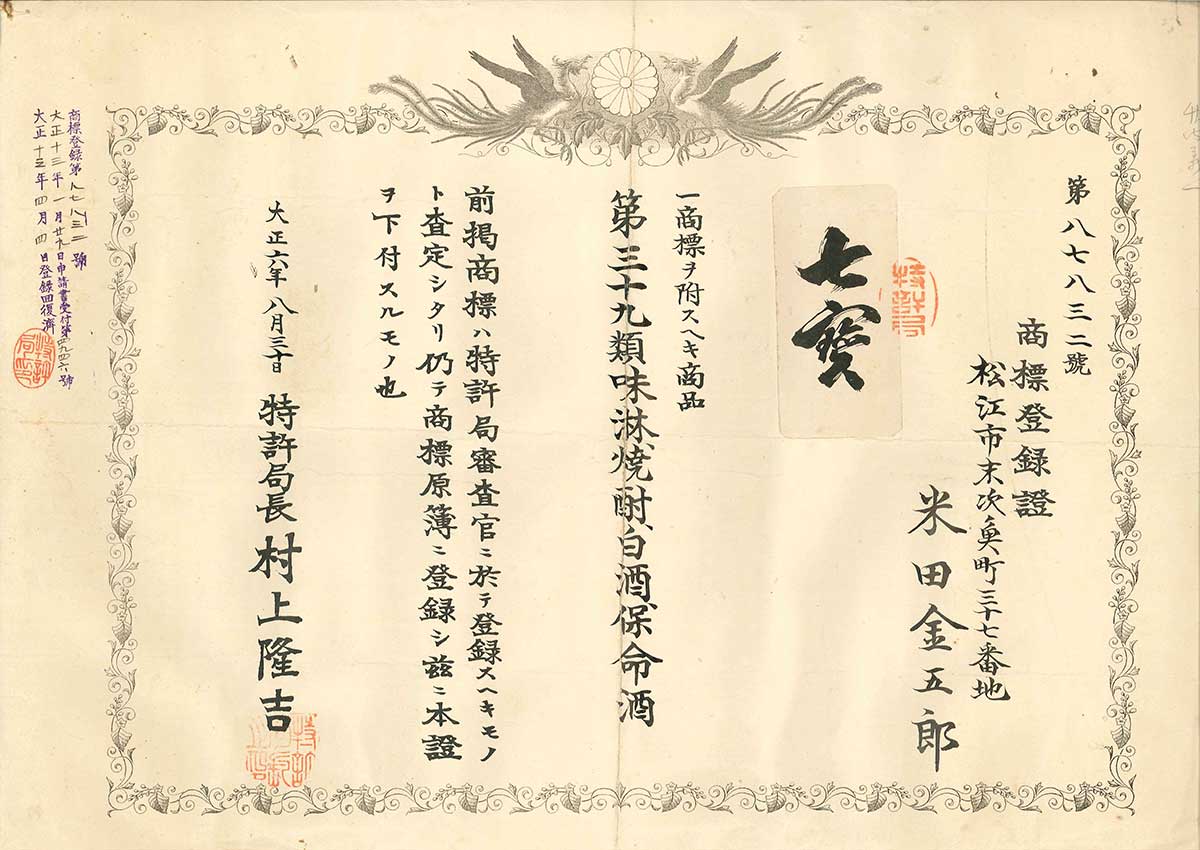 第八七八三二號
商標登録證
松江市末次魚町三十七番地
米田金五郎
七寳
特許局
一商標ヲ附スヘキ商品
第三十九類味淋、焼酎、白酒、保命酒
前掲商標ハ特許局審査官ニ於テ登録スヘキモノ
ト査定シタリ仍テ商標原簿ニ登録シ茲ニ本證
ヲ下付スルモノ也
大正六年八月三十日
特許局長村上隆吉
商標登録第八七八三二號
大正十三年一月廿九日申請書受付第四九四六號
大正十三年四月四日登録回復濟